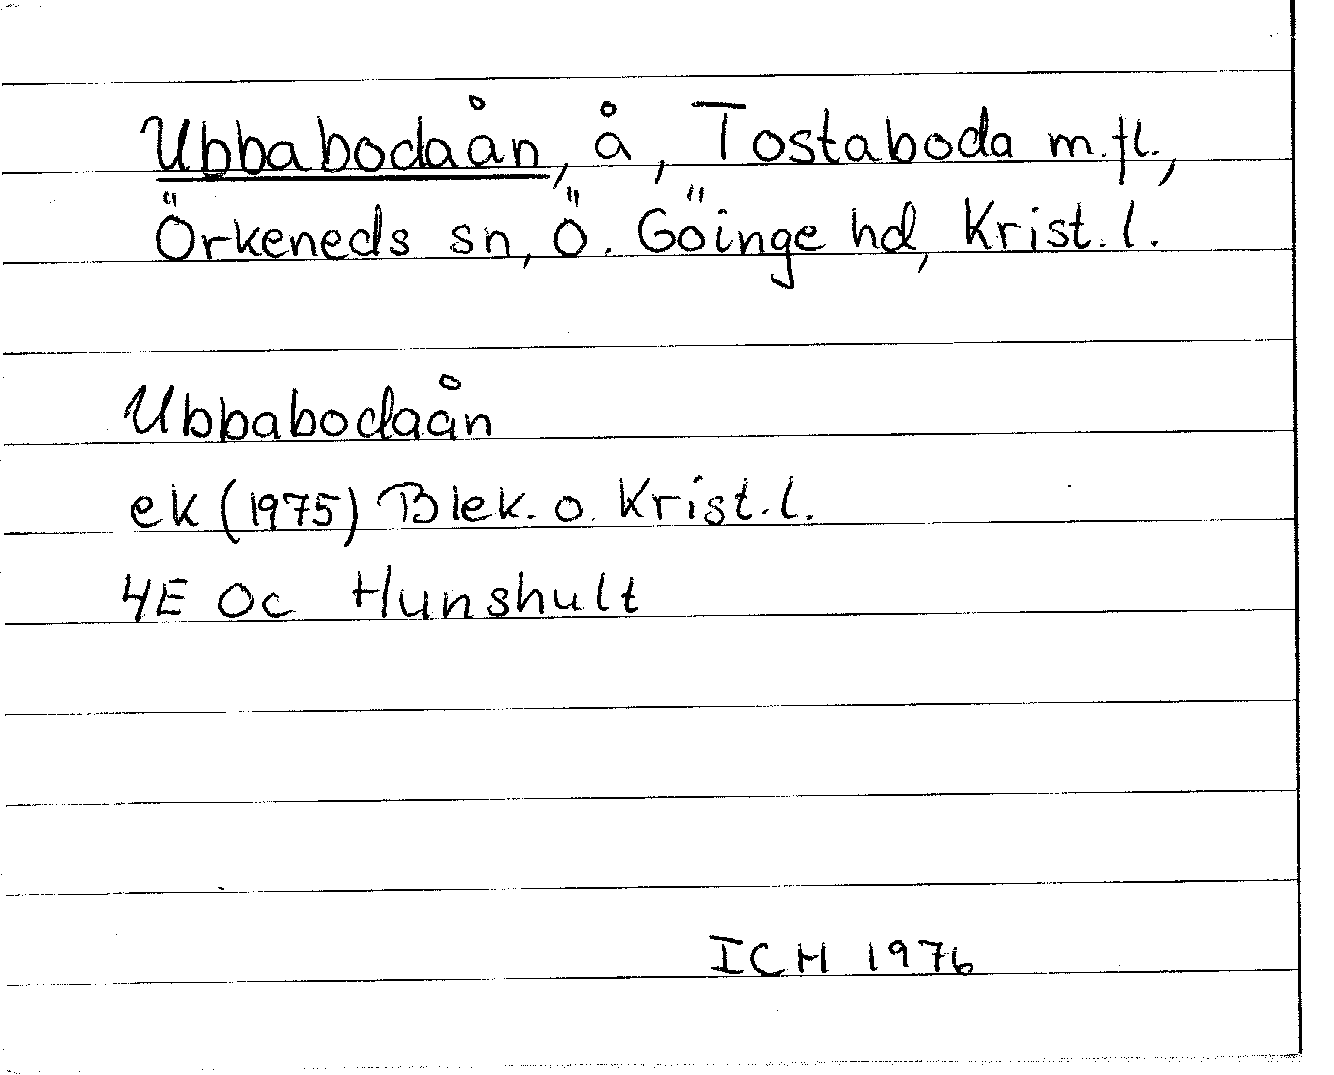 Ubbabodaån, å, Tostaboda m.fl.,
Örkeneds sn, Ö. Göinge hd, Krist. l.
Ubbabodaån
ek (1975) Blek. o. Krist. l.
4E Oc Hunshult
ICH 1976